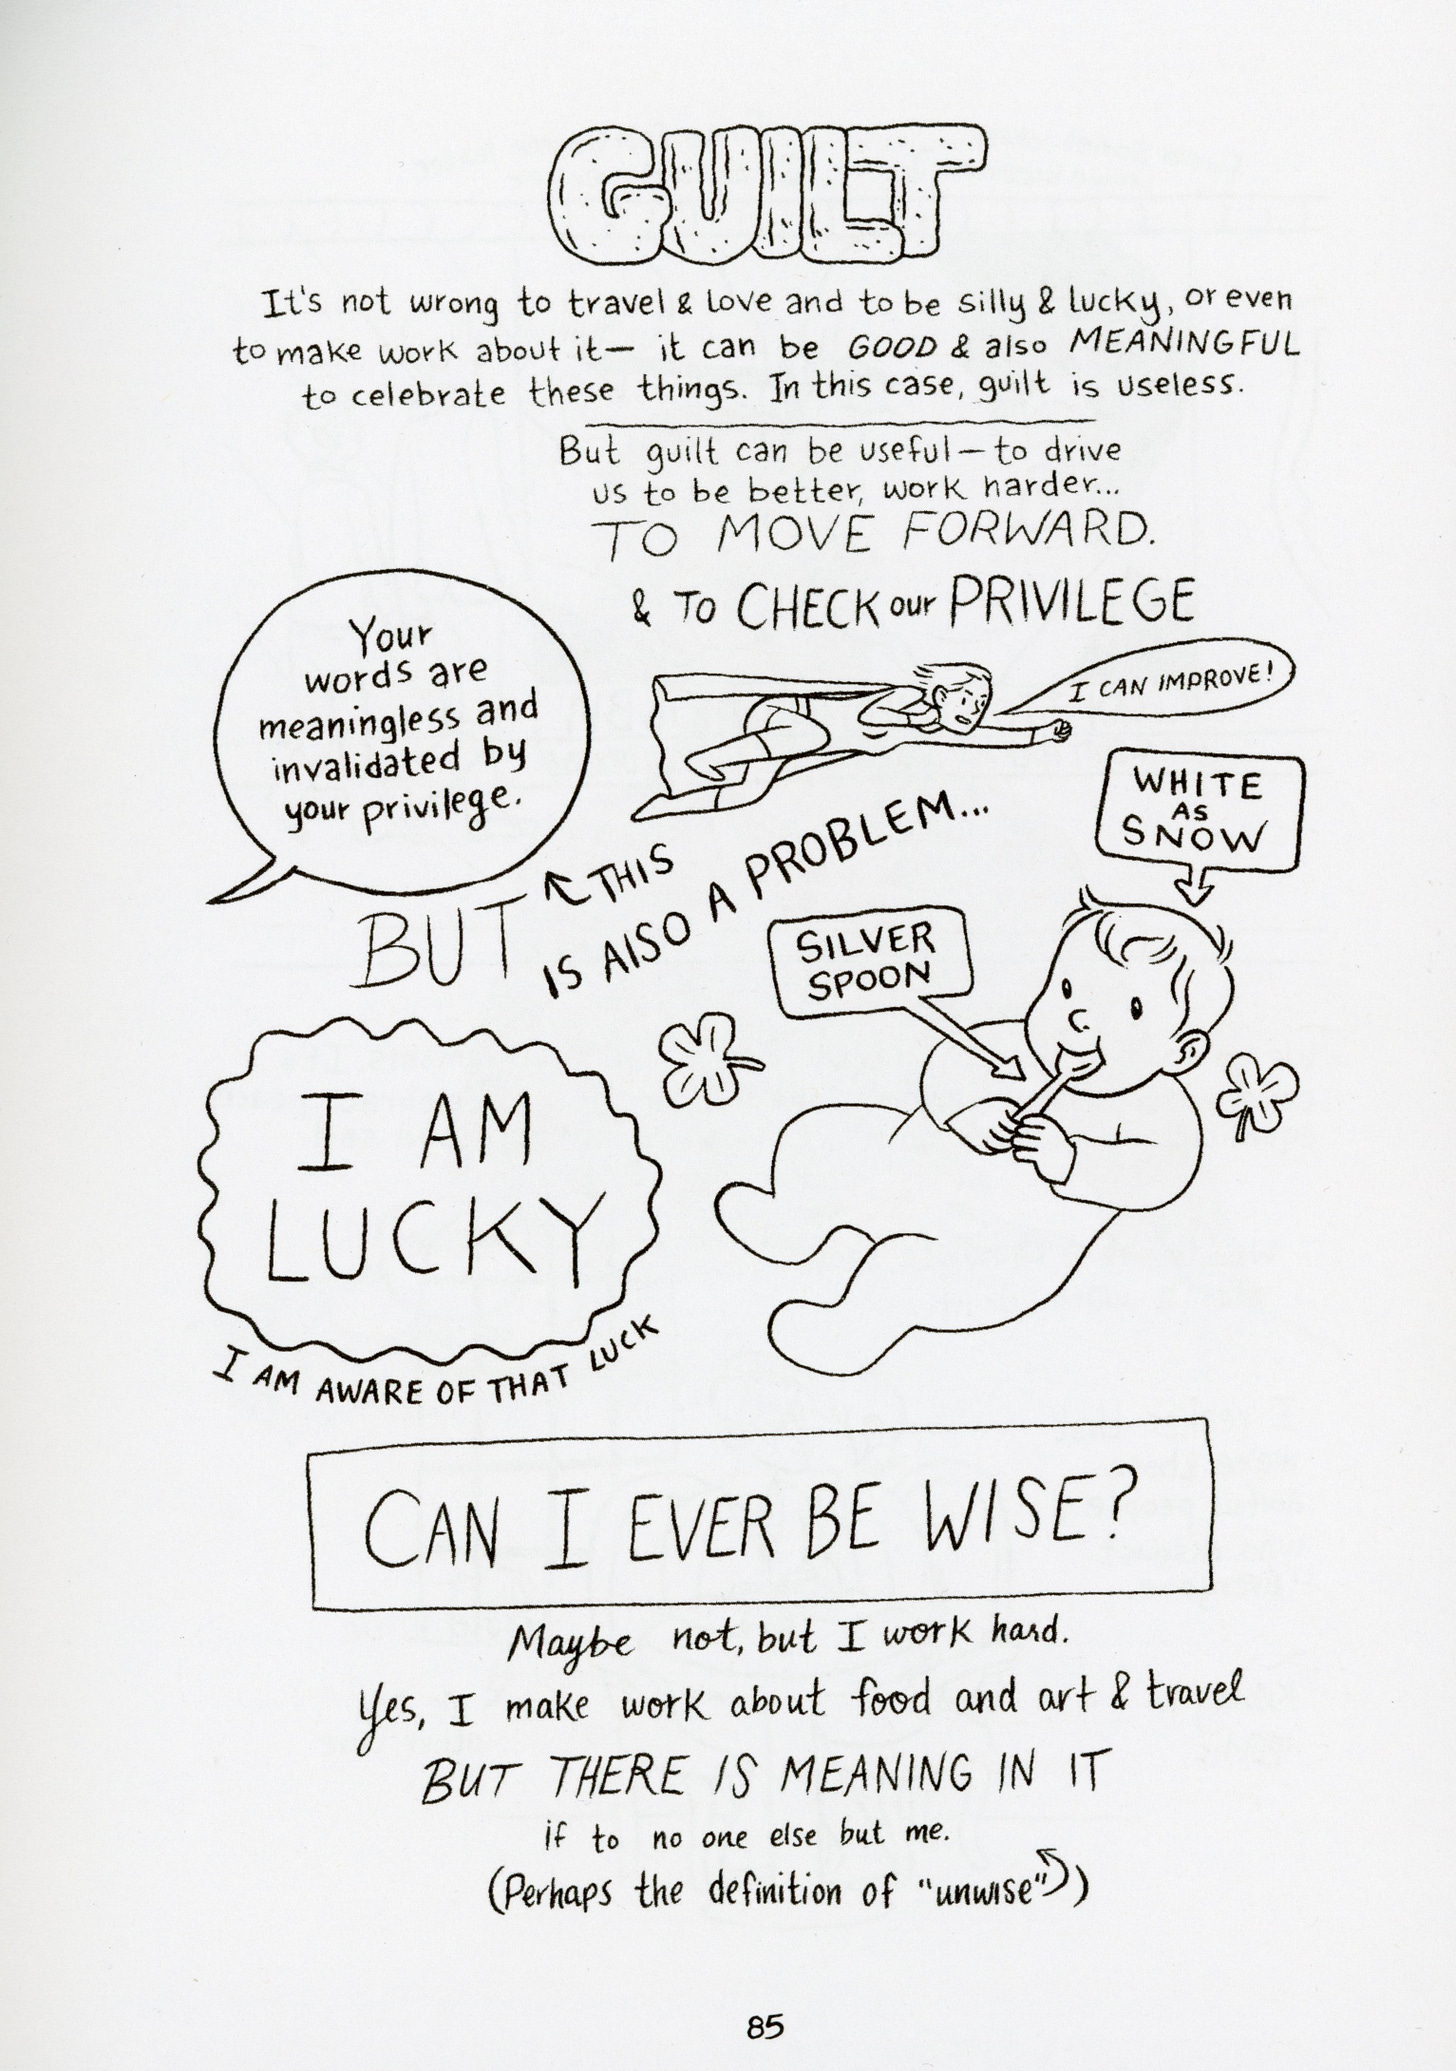 GUILT
It's not wrong to travel & love and to be silly & lucky, or even
to make work about it— it can be GOOD & also MEANINGFUL
to celebrate these things. In this case, guilt is useless.
But guilt can be useful—to drive
us to be better, work harder...
TO MOVE FORWARD.
& TO CHECK our PRIVILEGE
I CAN IMPROVE!
Your
words are
meaningless and
invalidated by
your privilege.
BUT
THIS
IS AlSO A PROBLEM...
WHITE
AS
SNOW
SILVER
SPOON
I AM
LUCKY
I AM AWARE OF THAT LUCK
CAN I EVER BE WISE?
Maybe not, but I work hard.
Yes, I make work about food and art & travel
BUT THERE IS MEANING IN IT
if to no one else but me.
(Perhaps the definition of "unwise")
85